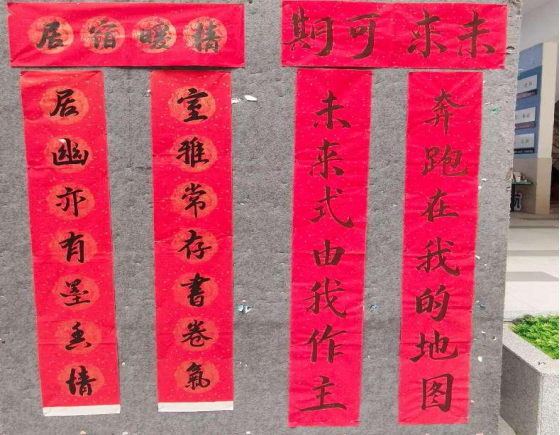 未来可期
奔跑在我的地图
未来式由我作主
情暖宿居
室雅常存書卷氣
居幽亦有墨香情